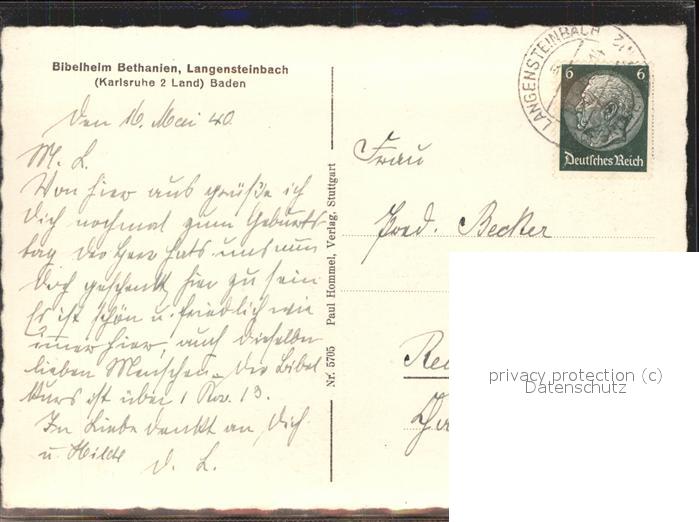 Bibelheim Bethanien, Langensteinbach
(Karlsruhe 2 Land) Baden
Den 16. Mai 40.
M. L.
Von hier aus grüße ich
Dich nochmal zum Geburts-
tag der Herr hats uns nun
doch geschenkt hier zu sein
Es ist schön u. friedlich wie
immer hier, auch dieselben
lieben Menschen. Der Bibel
kurs ist über 1 Kor. 13.
In Liebe denkt an Dich
u. Hilde
D. L.
Nr. 5705 Paul Hommel, Verlag, Stuttgart
LANGENSTEINBACH
6 6
Deutsches Reich
Frau
Fred. Becker
privacy protection (c)
Datenschutz